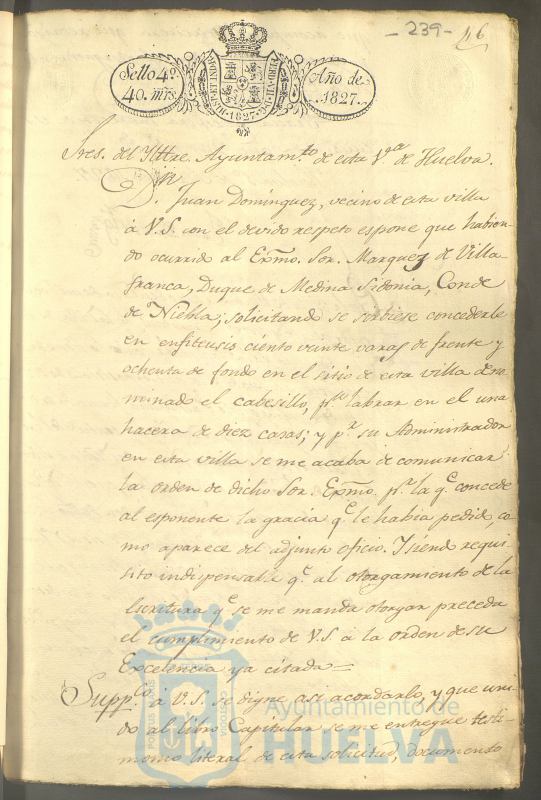 - 239 -
46
Sello 4º
40. mrs
Año de
1827.
HISP. ET IND. REX
1827
Sres. del Ylltre. Ayuntam.to de esta V.a de Huelva.
D.n Juan Domínguez, vecino de esta villa
à V.S. con el devido respeto espone que habien-
do ocurrido al Exmo. Sor. Marquez de Villa-
franca, Duque de Medina Sidonia, Conde
de Niebla; solicitando se sirbiese concederle
en enfiteusis ciento veinte varas de frente y
ochenta de fondo en el sitio de esta villa deno-
minado el cabesillo, p.a labrar en el una
hacera de diez casas; y p.r su Administrador
en esta villa se me acaba de comunicar
la orden de dicho Sor. Exmo. p.r la q.e concede
al esponente la gracia q.e le habia pedido, co-
mo aparece del adjunto oficio. Y siendo requi-
sito indispensable q.e al otorgamiento de la
Escritura q.e se me manda otorgar preceda
el cumplimiento de V.S. à la orden de su
Excelencia ya citada=
Supp.co à V.S. se digne asi acordarlo, y que uni-
do al libro Capitular se me entregue testi-
monio literal de esta solicitud, documento
Ayuntamiento de
HUELVA